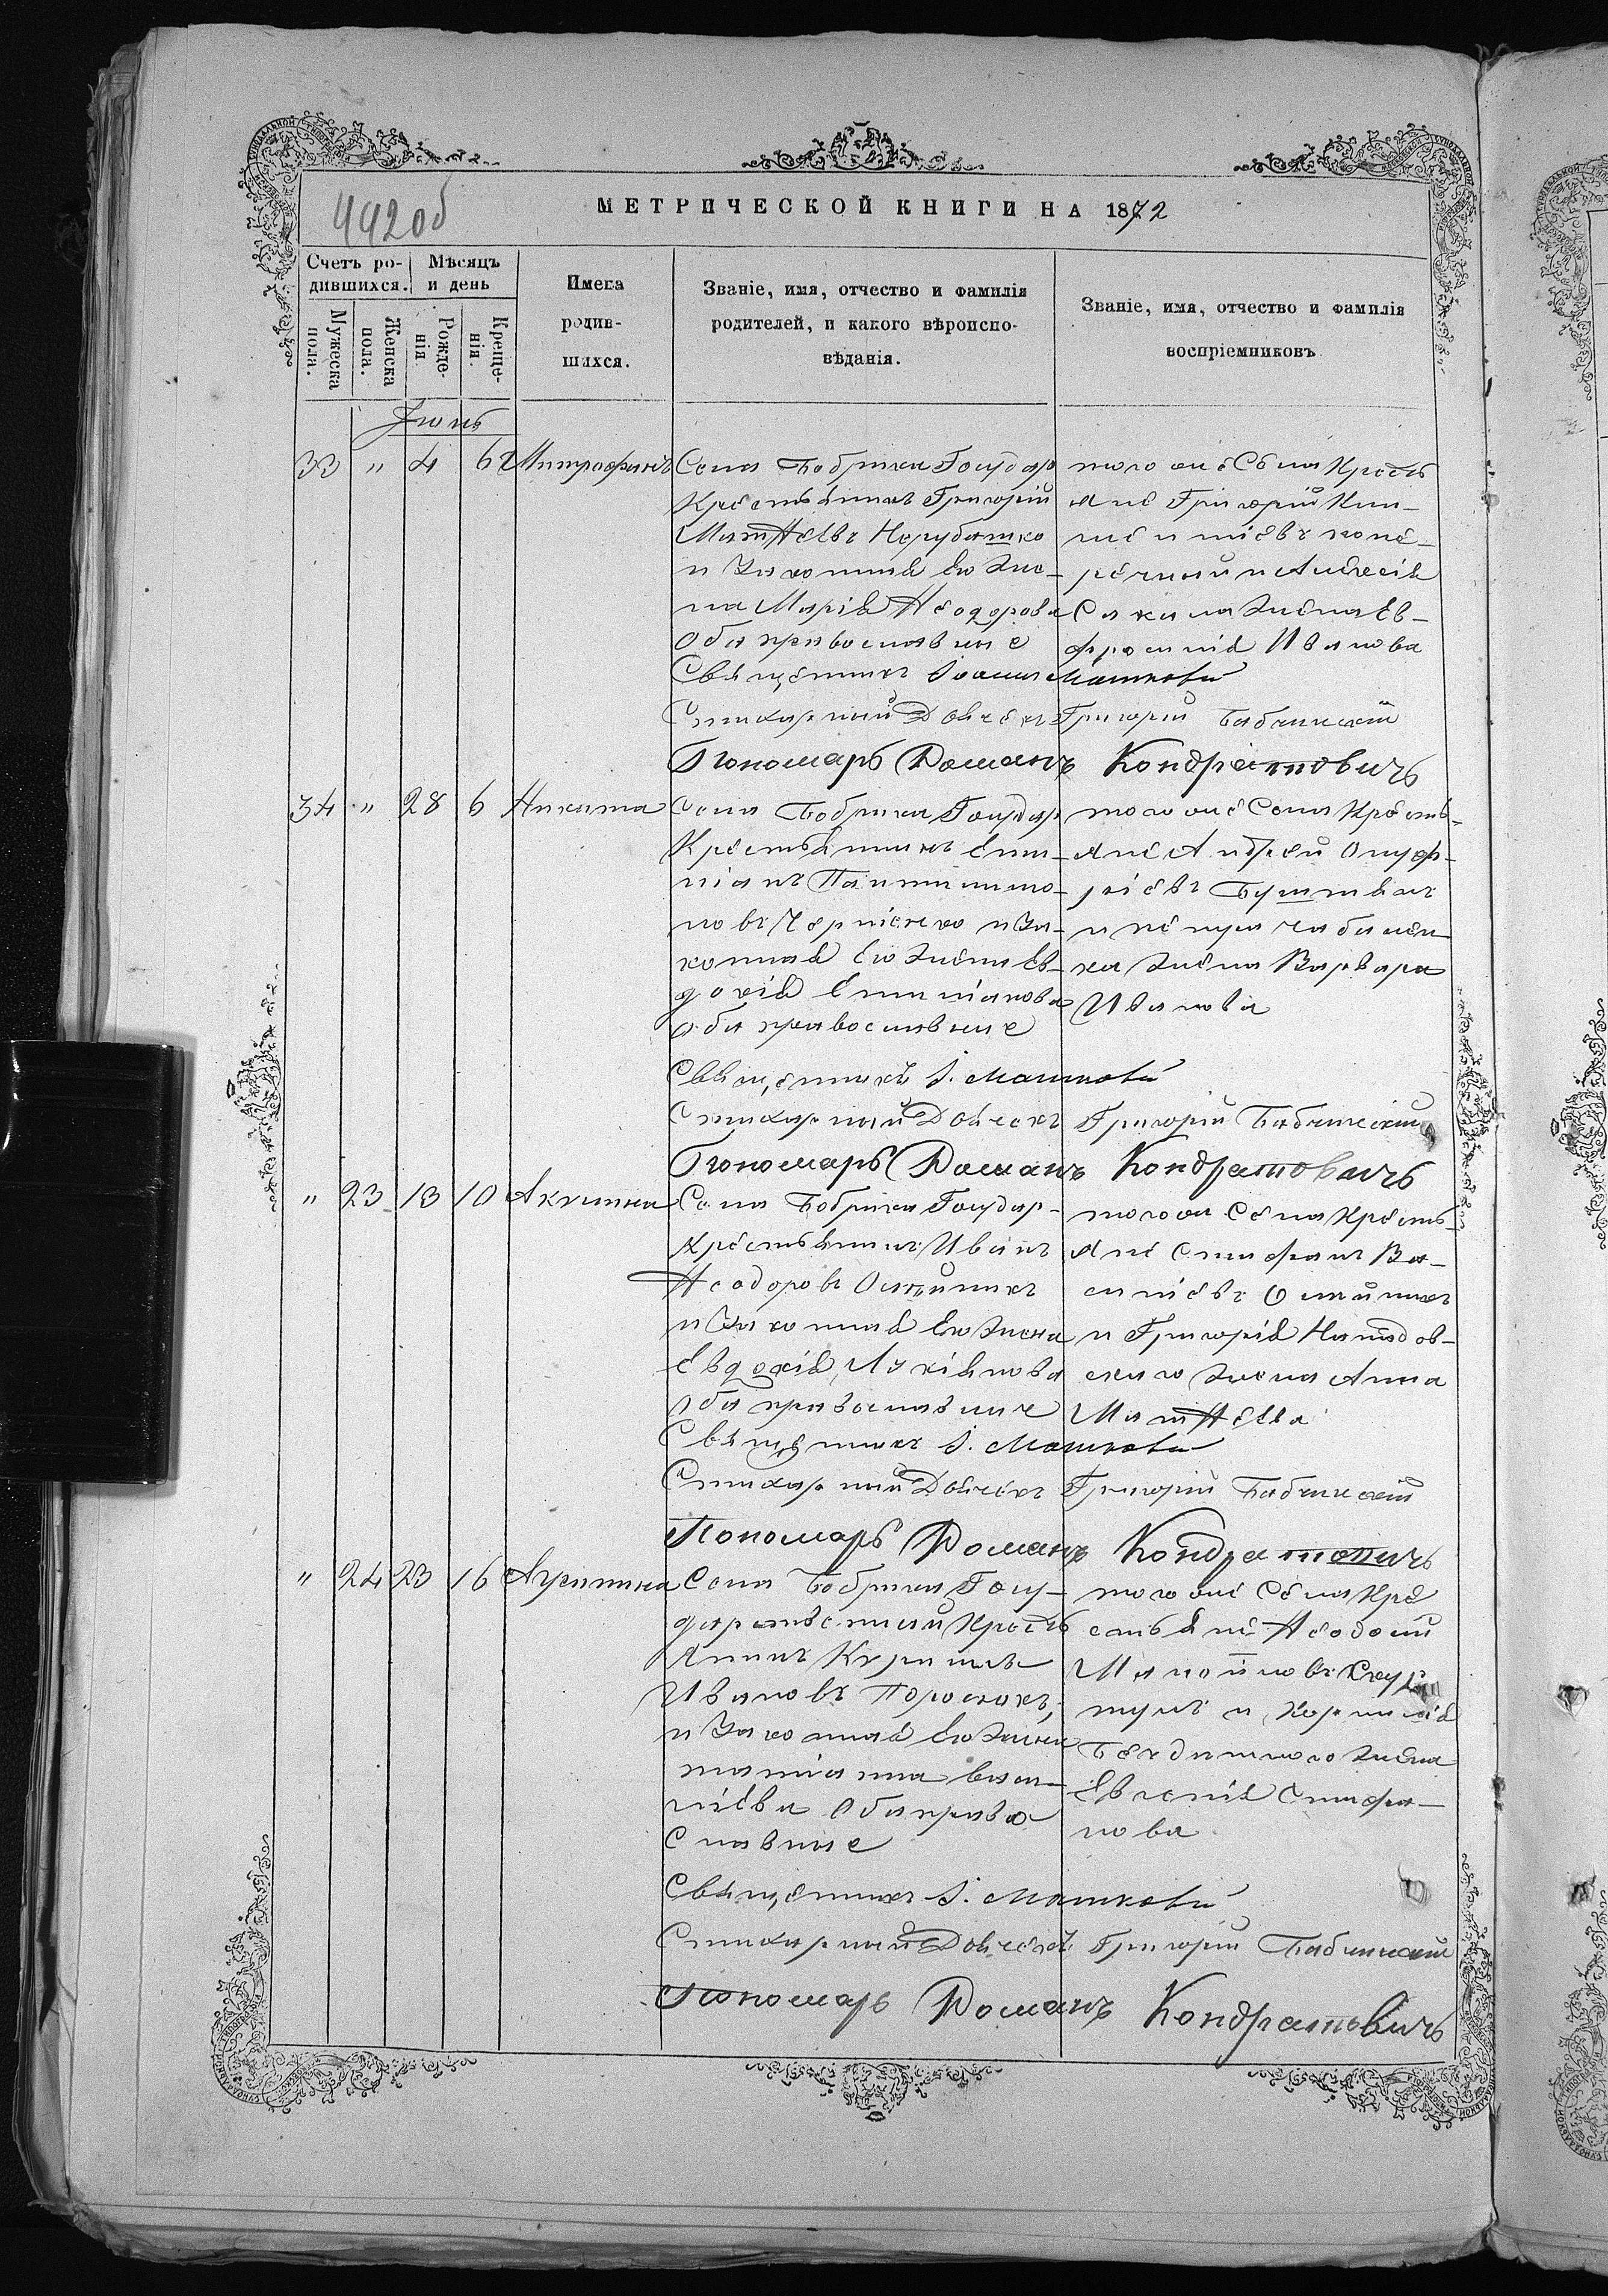 442об
МЕТРИЧЕСКОЙ КНИГИ НА 1872
Счетъ ро-
дившихся.
Мѣсяцъ
и день
Мужеска
пола.
Женска
пола.
Рожде-
нія.
Креще-
нія.
Имена
родив-
шихся.
Званіе, имя, отчество и фамилія
родителей, и какого вѣроиспо-
вѣданія.
Званіе, имя, отчество и фамилія
воспріемниковъ
Іюнь
33 " 4 6 Митрофанъ
Села Бобрика Государ
Крестьянинъ Григорій
Матѳѣевъ Нерубашко
и Законная его же-
на Марія Ѳеодорова
Оба православные
того же Села Кресть
яне Григорій
речный и Алексія
жена Ев-
фросинія Иванова
Священникъ Іоаннъ
Стихарный Дьячекъ Григорій Бабчинскій
Пономарь Романъ Кондратовичъ
34 " 28 6 Никита
Села Бобрика Государ
Крестьянинъ Епи-
новъ Черненко и За-
конная его жена Ев-
докія
оба православные
того же Села Кресть-
яне Андрей Онуф-
ріевъ
ка жена Варвара
Иванова
Священникъ І.
Стихарный Дьячекъ Григорій Бабчинскій
Пономарь Романъ Кондратовичъ
" 23 13 10 Акулина
Села Бобрика Государ-
Крестьянинъ Иванъ
Ѳеодоровъ Олейникъ
и Законная его жена
Евдокія Лукіянова
оба православные
того же Села Кресть-
яне Стефанъ Ва-
силіевъ Олейникъ
и Григорія
скаго жена Анна
Матѳѣева
Священникъ І.
Стихарный Дьячекъ Григорій Бабчинскій
Пономарь Романъ Кондратовичъ
" 24 23 16 Агрипина
Села Бобрика Госу-
дарственный Кресть
янинъ Кирилъ
Ивановъ
и Законная его жена
татіанна васи-
ліева Оба право
славные
того же Села Кре
стьяне Ѳеодосій
и Корнилія
жена
Евгенія Стефа-
нова
Священникъ І.
Стихарный Дьячекъ Григорій Бабчинскій
Пономарь Романъ Кондратовичъ